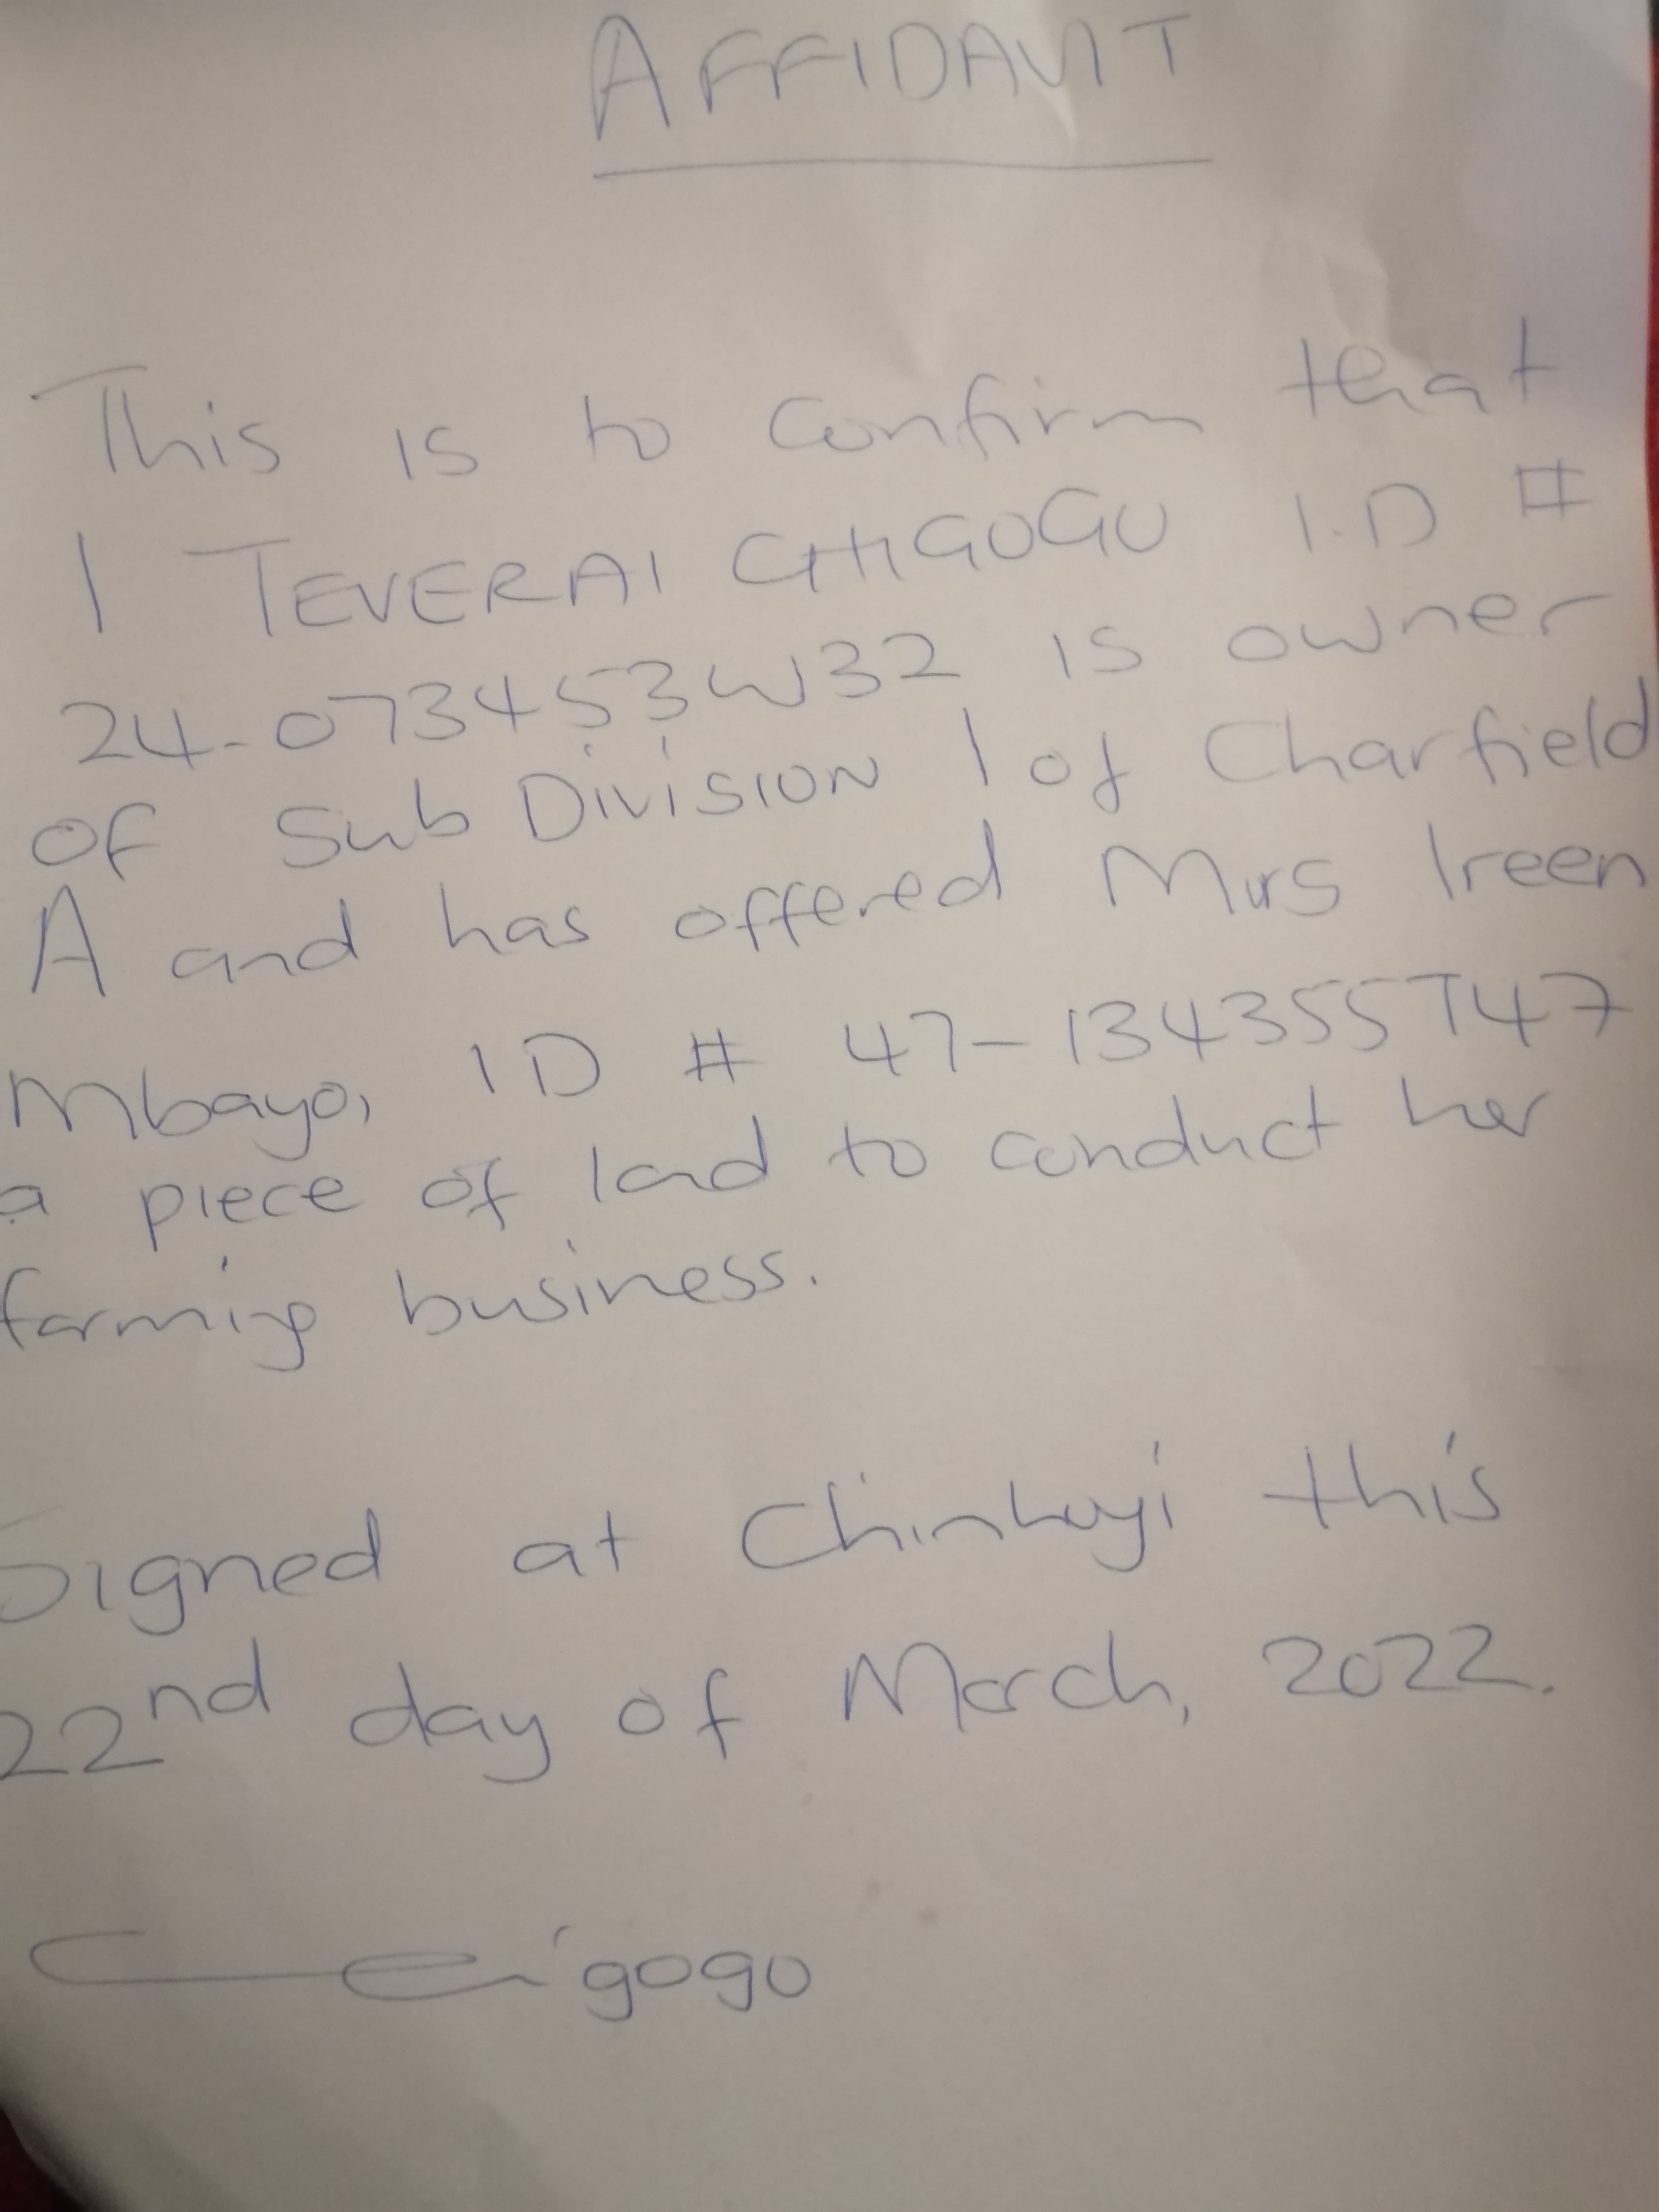 AFFIDAVIT
This is to confirm that
I TEVERAI CHIGOGO I.D #
24-073453W32 is owner
of Sub Division 1 of Charfield
A and has offered Mrs Ireen
Mbayo, ID # 47-134355T47
a piece of land to conduct her
farming business.
Signed at Chinhoyi this
22nd day of March, 2022.
Chigogo